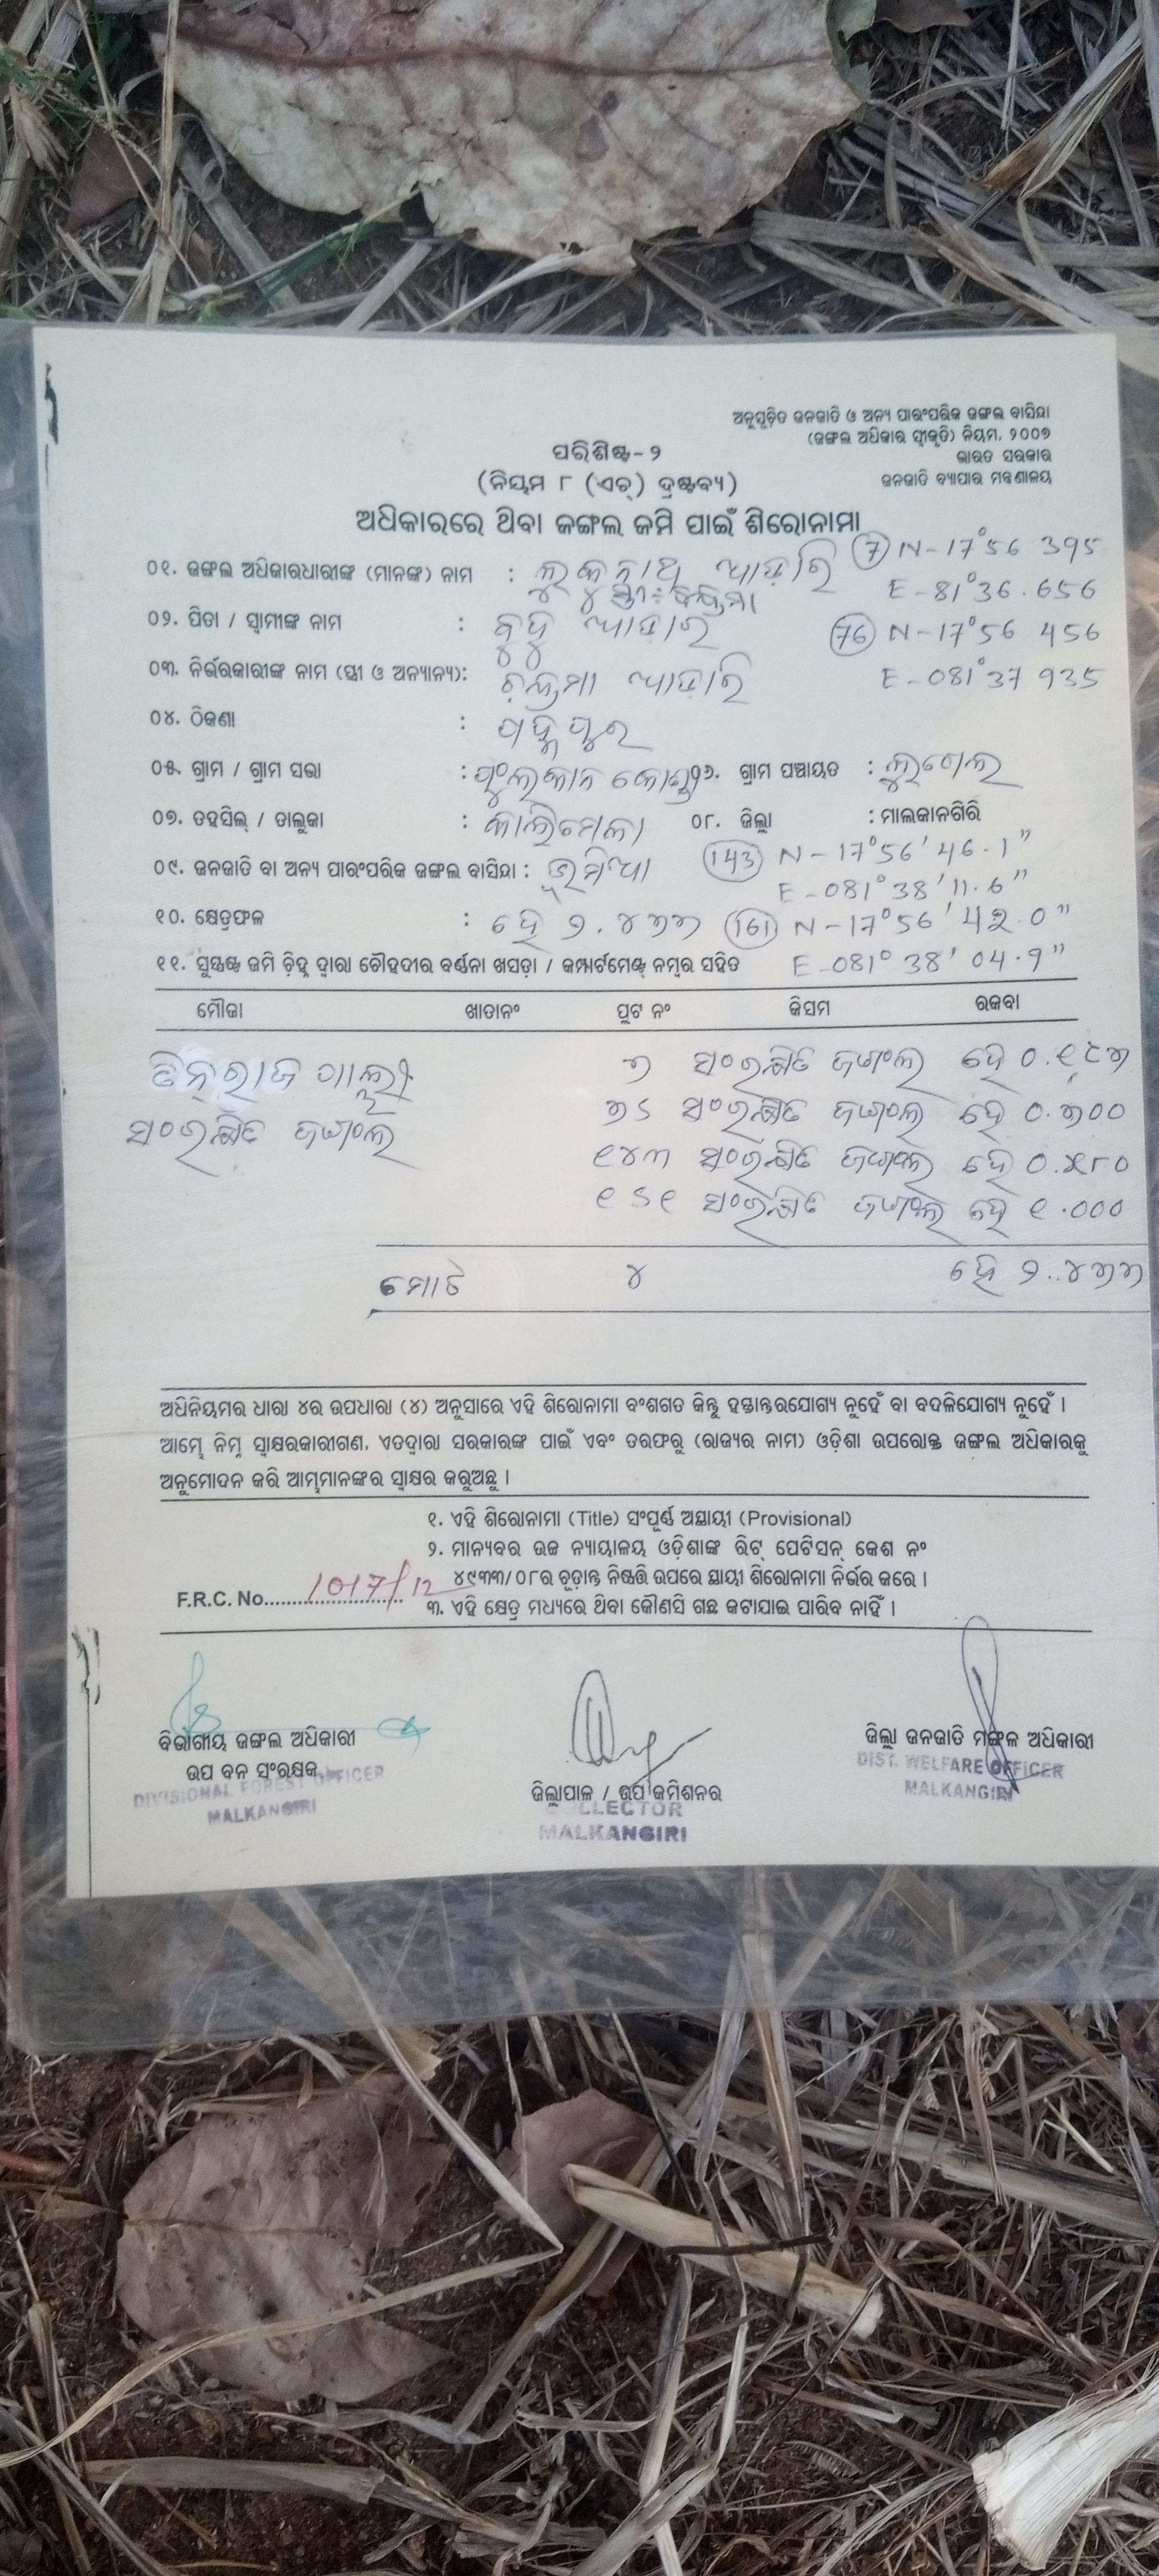 ଅନୁସୂଚିତ ଜନଜାତି ଓ ଅନ୍ୟ ପାରଂପରିକ ଜଙ୍ଗଲ ବାସିନ୍ଦା
(ଜଙ୍ଗଲ ଅଧିକାର ସ୍ୱୀକୃତି) ନିୟମ, ୨୦୦୭
ଭାରତ ସରକାର
ଜନଜାତି ବ୍ୟାପାର ମନ୍ତ୍ରଣାଳୟ
ପରିଶିଷ୍ଟ-୨
(ନିୟମ ୮ (ଏଚ୍) ଦ୍ରଷ୍ଟବ୍ୟ)
ଅଧିକାରରେ ଥିବା ଜଙ୍ଗଲ ଜମି ପାଇଁ ଶିରୋନାମା
7 N-17°56 395
୦୧. ଜଙ୍ଗଲ ଅଧିକାରଧାରୀଙ୍କ (ମାନଙ୍କ) ନାମ :
E-81°36.656
୦୨. ପିତା / ସ୍ୱାମୀଙ୍କ ନାମ : 76 N-17°56 456
୦୩. ନିର୍ଭରକାରୀଙ୍କ ନାମ (ସ୍ତ୍ରୀ ଓ ଅନ୍ୟାନ୍ୟ): E-081°37 935
୦୪. ଠିକଣା :
୦୫. ଗ୍ରାମ / ଗ୍ରାମ ସଭା : ୦୬. ଗ୍ରାମ ପଞ୍ଚାୟତ :
୦୭. ତହସିଲ୍ / ତାଲୁକା : କାଲିମେଳା ୦୮. ଜିଲ୍ଲା : ମାଲକାନଗିରି
୦୯. ଜନଜାତି ବା ଅନ୍ୟ ପାରଂପରିକ ଜଙ୍ଗଲ ବାସିନ୍ଦା : ଭୂମିଆ 143 N-17°56'46.1"
E-081°38'11.6"
୧୦. କ୍ଷେତ୍ରଫଳ : ହେ ୨.୪୭୭ 161 N-17°56'42.0"
୧୧. ସୁସ୍ପଷ୍ଟ ଜମି ଚିହ୍ନ ଦ୍ୱାରା ଚୌହଦୀର ବର୍ଣ୍ଣନା ଖସଡ଼ା / କମ୍ପାର୍ଟମେଣ୍ଟ ନମ୍ବର ସହିତ E-081°38'04.9"
ମୌଜା ଖାତାନଂ ପ୍ଲଟ ନଂ କିସମ ରକବା
୭ ସଂରକ୍ଷିତ ଜଙ୍ଗଲ ହେ ୦.୧୯୭
ସଂରକ୍ଷିତ ଜଙ୍ଗଲ ୭୬ ସଂରକ୍ଷିତ ଜଙ୍ଗଲ ହେ ୦.୭୦୦
୧୪୩ ସଂରକ୍ଷିତ ଜଙ୍ଗଲ ହେ ୦.୫୮୦
୧୬୧ ସଂରକ୍ଷିତ ଜଙ୍ଗଲ ହେ ୧.୦୦୦
ମୋଟ ୪ ହେ ୨.୪୭୭
ଅଧିନିୟମର ଧାରା ୪ର ଉପଧାରା (୪) ଅନୁସାରେ ଏହି ଶିରୋନାମା ବଂଶଗତ କିନ୍ତୁ ହସ୍ତାନ୍ତରଯୋଗ୍ୟ ନୁହେଁ ବା ବଦଳିଯୋଗ୍ୟ ନୁହେଁ ।
ଆମ୍ଭେ ନିମ୍ନ ସ୍ୱାକ୍ଷରକାରୀଗଣ, ଏତଦ୍ୱାରା ସରକାରଙ୍କ ପାଇଁ ଏବଂ ତରଫରୁ (ରାଜ୍ୟର ନାମ) ଓଡ଼ିଶା ଉପରୋକ୍ତ ଜଙ୍ଗଲ ଅଧିକାରକୁ
ଅନୁମୋଦନ କରି ଆମ୍ଭମାନଙ୍କର ସ୍ୱାକ୍ଷର କରୁଅଛୁ ।
୧. ଏହି ଶିରୋନାମା (Title) ସଂପୂର୍ଣ୍ଣ ଅସ୍ଥାୟୀ (Provisional)
୨. ମାନ୍ୟବର ଉଚ୍ଚ ନ୍ୟାୟାଳୟ ଓଡ଼ିଶାଙ୍କ ରିଟ୍ ପେଟିସନ୍ କେଶ ନଂ
୪୯୩୩/୦୮ର ଚୂଡ଼ାନ୍ତ ନିଷ୍ପତ୍ତି ଉପରେ ସ୍ଥାୟୀ ଶିରୋନାମା ନିର୍ଭର କରେ ।
F.R.C. No. 1017/12
୩. ଏହି କ୍ଷେତ୍ର ମଧ୍ୟରେ ଥିବା କୌଣସି ଗଛ କଟାଯାଇ ପାରିବ ନାହିଁ ।
ବିଭାଗୀୟ ଜଙ୍ଗଲ ଅଧିକାରୀ
ଉପ ବନ ସଂରକ୍ଷକ
DIVISIONAL FOREST OFFICER
MALKANGIRI
ଜିଲ୍ଲାପାଳ / ଉପ କମିଶନର
COLLECTOR
MALKANGIRI
ଜିଲ୍ଲା ଜନଜାତି ମଙ୍ଗଳ ଅଧିକାରୀ
DIST. WELFARE OFFICER
MALKANGIRI